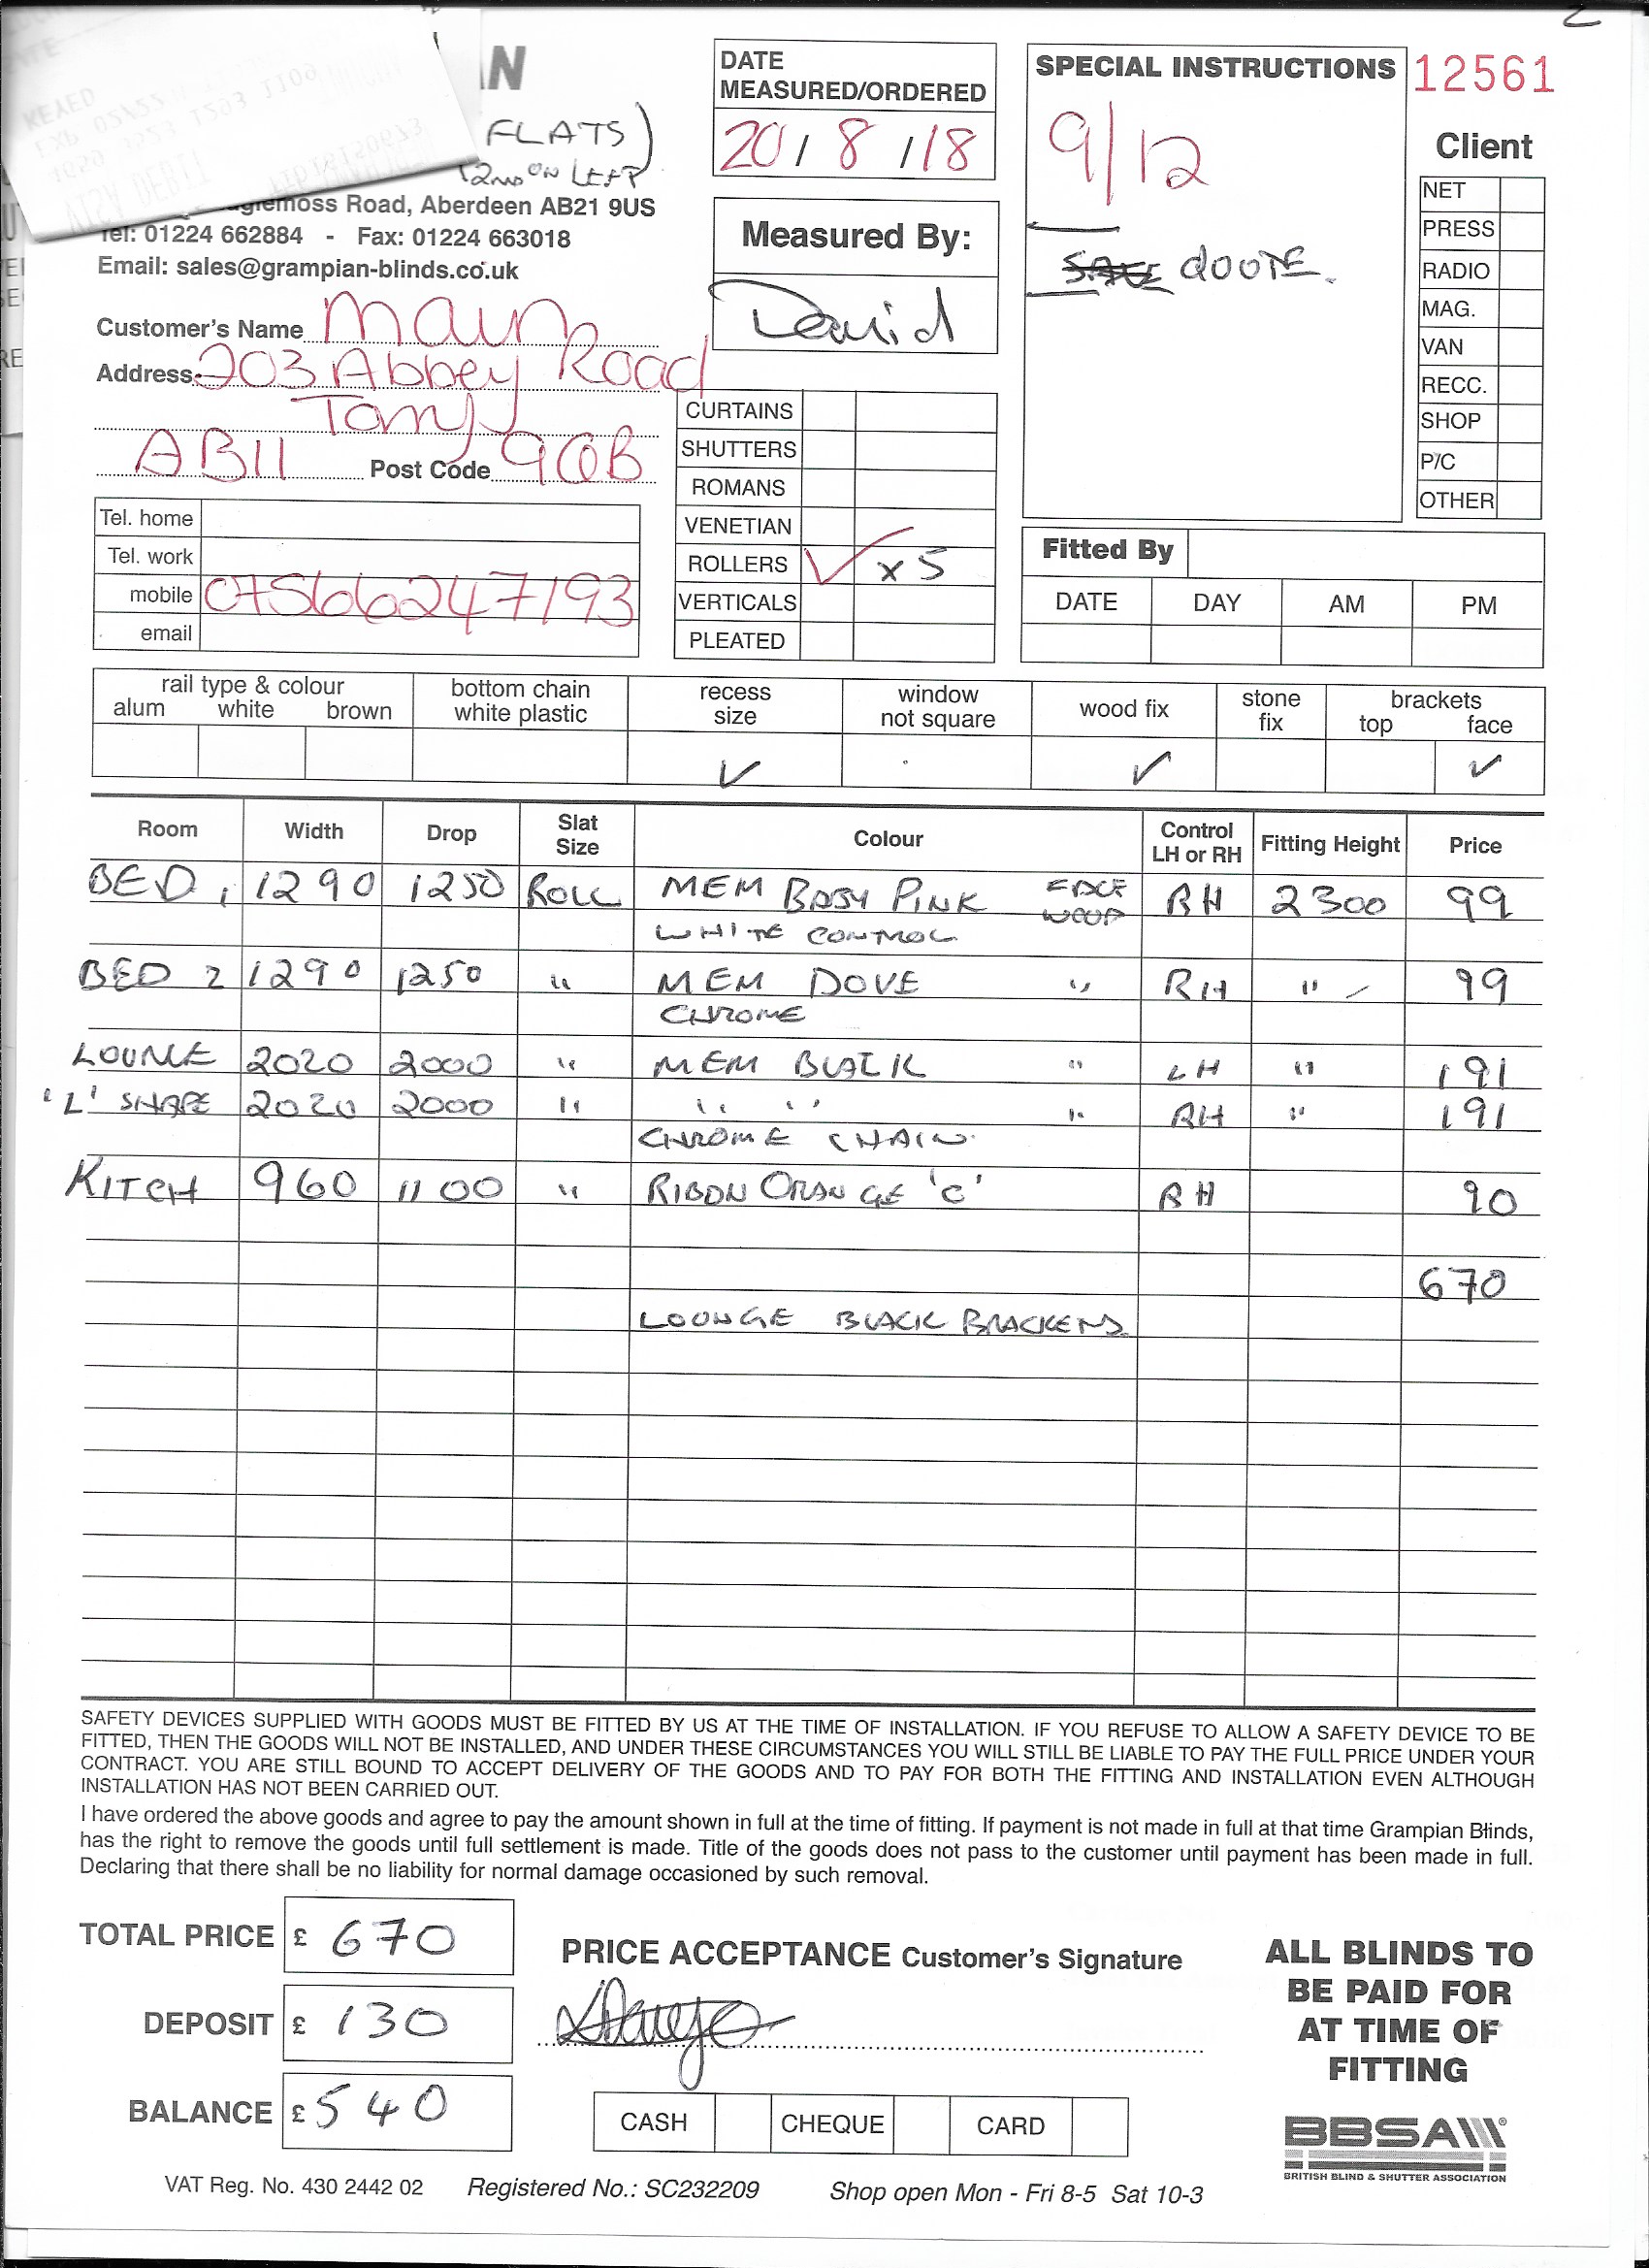 AN
FLATS)
(2ND ON LEFT
Road, Aberdeen AB21 9US
Tel: 01224 662884 - Fax: 01224 663018
Email: sales@grampian-blinds.co.uk
DATE
MEASURED/ORDERED
20/8/18
Measured By:
David
SPECIAL INSTRUCTIONS
9/12
QUOTE.
12561
Client
NET
PRESS
RADIO
MAG.
VAN
RECC.
SHOP
P/C
OTHER
Customer's Name
Address: 203 Abbey Road
Torry
AB11 Post Code 9QB
Tel. home
Tel. work
mobile 07566247193
email
CURTAINS
SHUTTERS
ROMANS
VENETIAN
ROLLERS ✓ x5
VERTICALS
PLEATED
Fitted By
DATE DAY AM PM
rail type & colour
alum white brown
bottom chain
white plastic
recess
size
✓
window
not square
wood fix
✓
stone
fix
brackets
top face
✓
Room Width Drop Slat Size Colour Control LH or RH Fitting Height Price
BED 1 1290 1250 ROLL MEM BABY PINK EDGE WOOD RH 2300 99
WHITE CONTROL
BED 2 1290 1250 " MEM DOVE " RH " 99
CHROME
LOUNGE 2020 2000 " MEM BLACK " LH " 191
'L' SHAPE 2020 2000 " " " " RH " 191
CHROME CHAIN
KITCH 960 1100 " RIBON ORANGE 'C' RH 90
670
LOUNGE BLACK BRACKETS
SAFETY DEVICES SUPPLIED WITH GOODS MUST BE FITTED BY US AT THE TIME OF INSTALLATION. IF YOU REFUSE TO ALLOW A SAFETY DEVICE TO BE
FITTED, THEN THE GOODS WILL NOT BE INSTALLED, AND UNDER THESE CIRCUMSTANCES YOU WILL STILL BE LIABLE TO PAY THE FULL PRICE UNDER YOUR
CONTRACT. YOU ARE STILL BOUND TO ACCEPT DELIVERY OF THE GOODS AND TO PAY FOR BOTH THE FITTING AND INSTALLATION EVEN ALTHOUGH
INSTALLATION HAS NOT BEEN CARRIED OUT.
I have ordered the above goods and agree to pay the amount shown in full at the time of fitting. If payment is not made in full at that time Grampian Blinds,
has the right to remove the goods until full settlement is made. Title of the goods does not pass to the customer until payment has been made in full.
Declaring that there shall be no liability for normal damage occasioned by such removal.
TOTAL PRICE £ 670
DEPOSIT £ 130
BALANCE £ 540
PRICE ACCEPTANCE Customer's Signature
CASH CHEQUE CARD
ALL BLINDS TO
BE PAID FOR
AT TIME OF
FITTING
BBSA
BRITISH BLIND & SHUTTER ASSOCIATION
VAT Reg. No. 430 2442 02 Registered No.: SC232209 Shop open Mon - Fri 8-5 Sat 10-3